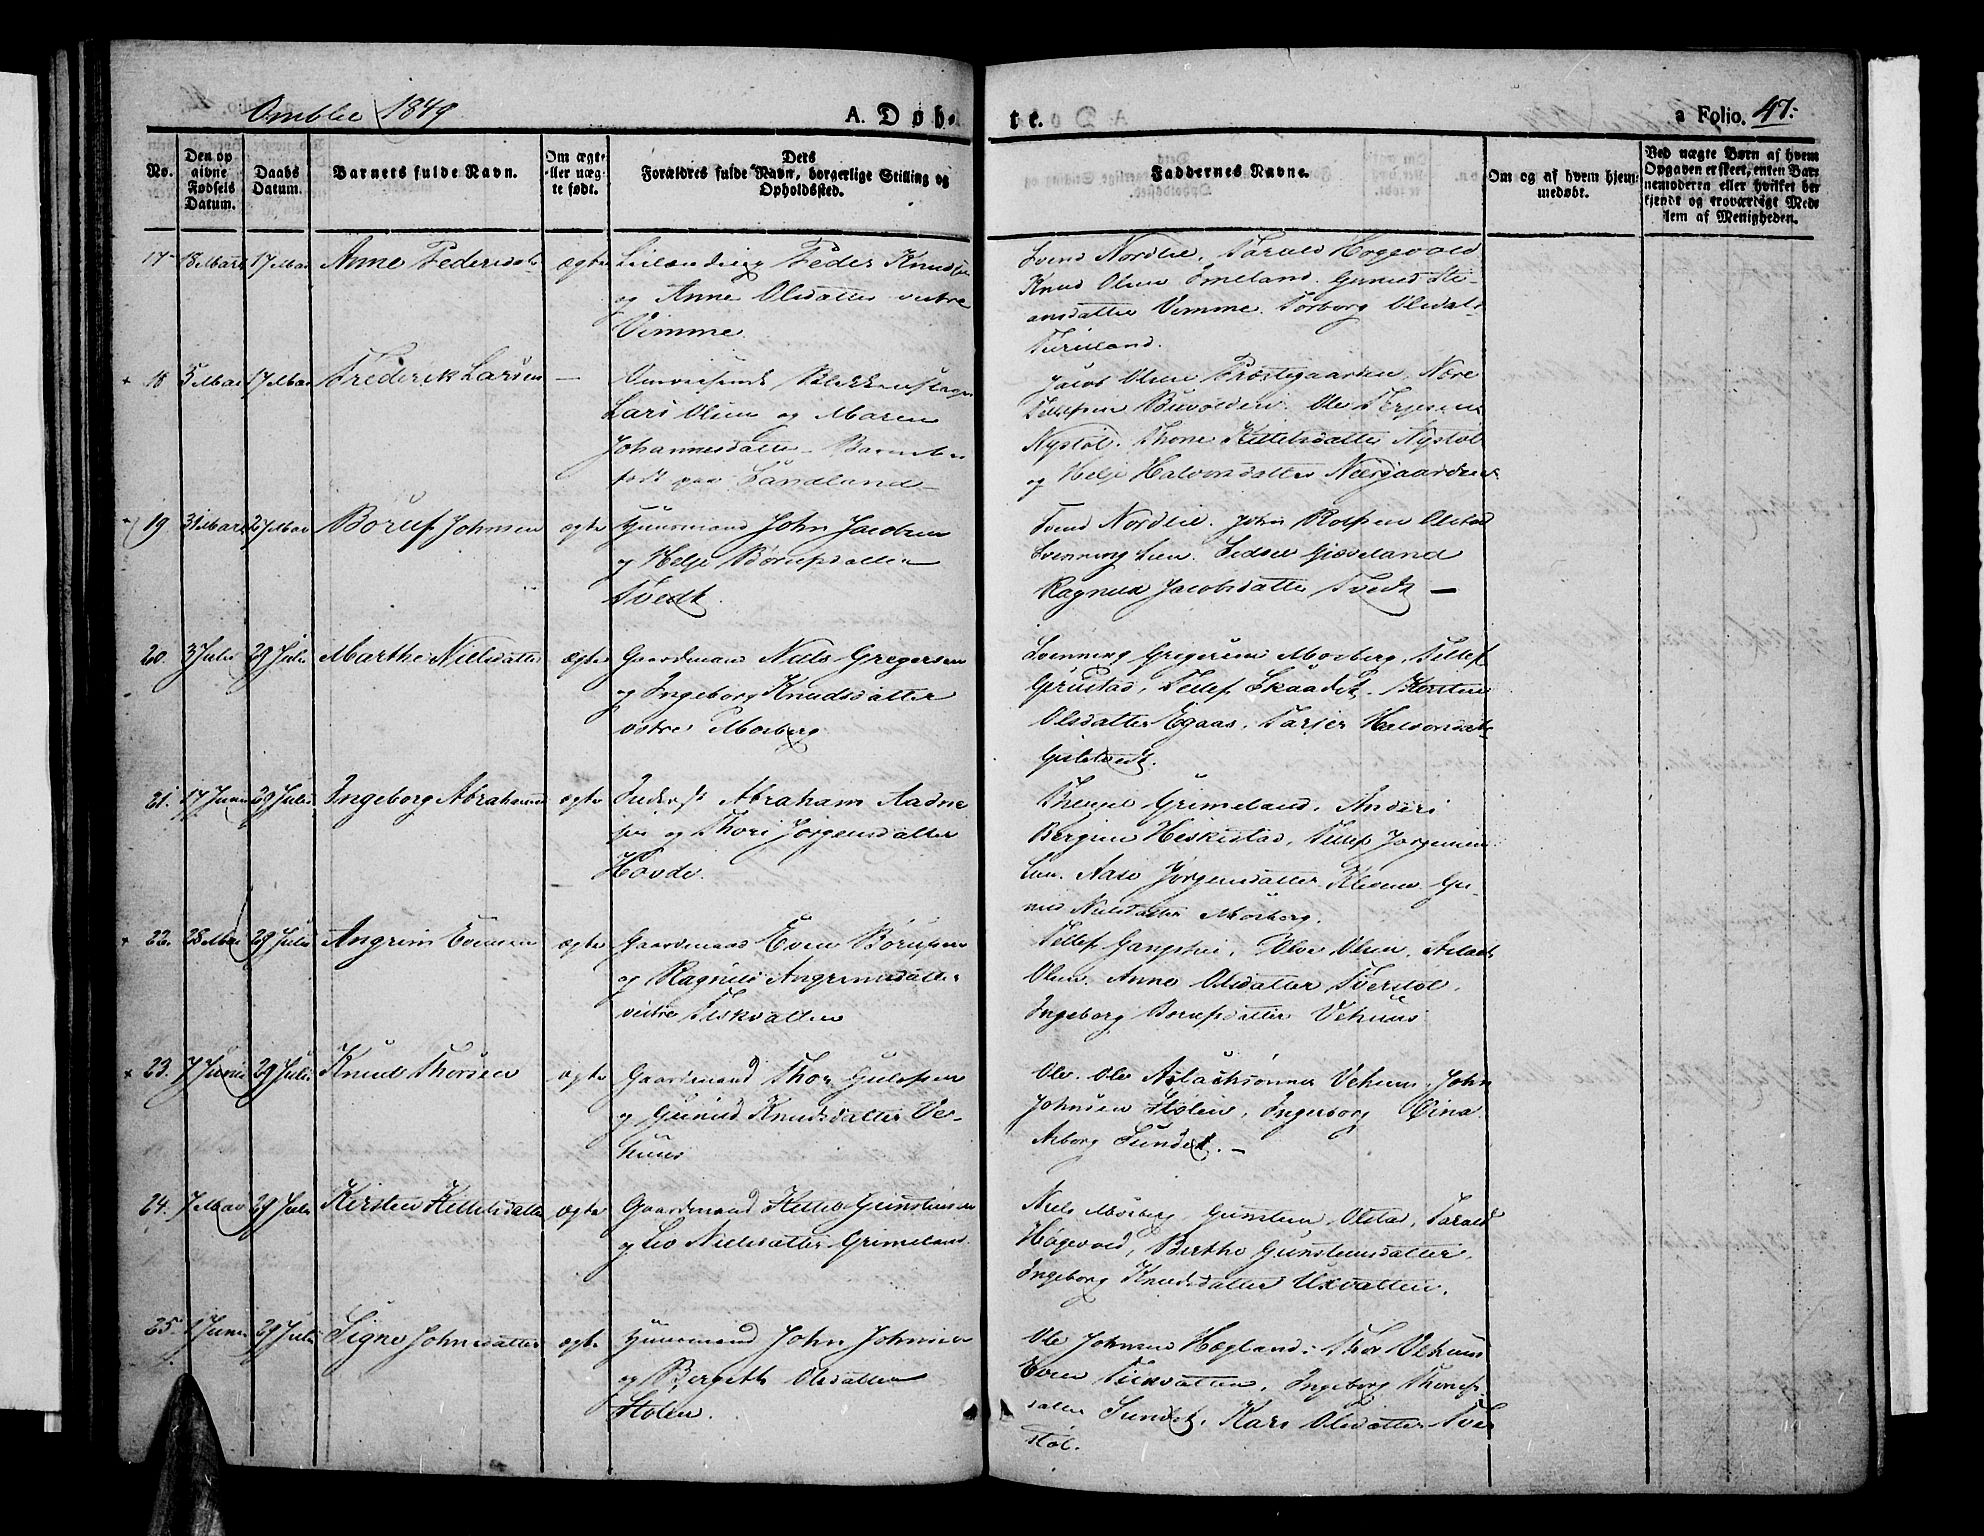 Omblie 1849
A. Døb-
te.
a Folio. 47.
No.
Den op
givne
Fødsels
Datum.
Daabs
Datum.
Barnets fulde Navn.
Om ægte
eller uæg
te født.
Dets
Forældres fulde Navn, borgerlige Stilling og
Opholdssted.
Faddernes Navne.
Om og af hvem hjem-
medøbt.
Ved uægte Børn af hvem
Opgaven er skeet, enten Bar
nemoderen eller hvilket be
kjendt og troværdigt Med
lem af Menigheden.
17 18 Marts 17 Mai Anne Pedersdat ægte Leilænding Peder Knudsen
og Anne Olsdatter vestre
Vimme
Svend Nordlie, Tarald Hogevold
Knud Olsen Grimeland. Gunild Ste-
ansdatter Vimme. Torborg Olsdat
18 5 Mai 17 Mai Frederik Larsen — Omreisende Blikkenslager
Lars Olsen og Maren
Johannesdatter
født paa Sandland
Jacob Olsen Præstegaarden
Ole Terjesen
Nystøl. Thone Kittelsdatter Nystøl
og Helje Halvorsdatter Næsgaarden
19. 31 Marts 27 Mai Børuf Johnsen ægte Huusmand John Jacobsen
og Helje Børufsdatter
Tvedt
Svend Nordlie. John Rolfsen Olstad
Svenning Lien. Sidsel Gjæveland
Ragnild Jacobsdatter Tvedt —
20. 3 Juli 29 Juli Marthe Nielsdatter ægte Gaardmand Niels Gregersen
og Ingeborg Knudsdatter
vestre Mosberg
Svenning Gregersen Mosberg, Tellef
Grustad, Tellef Skaadet. Kirsten
Olsdatter Egaas, Tarjer Halvorsdat
21. 17 Juni 29 Juli Ingeborg Abrahamsd ægte Inderst Abraham Aadne
sen og Thore Jørgensdatter
Hovde.
Grimeland, Anders
Bergsen Heskestad, Tellef Jørgensen
Lien. Aase Jørgensdatter Kleven. Gu
nild Nielsdatter Mosberg.
22. 28 Mai 29 Juli Angrim Evensen ægte Gaardmand Even Børufsen
og Ragnild Angrimsdatter
vestre Fiskvatten
Tellef Gangshei, Olve Olsen, Aslack
Olsen. Anne Olsdatter Tverstøl,
Ingeborg Borufsdatter Vehuus
23. 7 Juni 29 Juli Knud Thorsen ægte Gaardmand Thor Gulofsen
og Gunild Knudsdatter Ve-
huus
Ole. Ole Aslacksønner Vehuus. John
Johnsen Stolen, Ingeborg Eina
Asborg Sundet. —
24. 7 Mai 29 Juli Kirsten Kittelsdatter ægte Gaardmand Kittel Gunsteinsen
og Liv Nielsdatter Grimeland
Niels Mosberg, Gunstein Olstad, Tarald
Høgevold, Berthe Gunsteinsdatter.
Ingeborg Knudsdatter Uxvatten.
25. 1 Juni 29 Juli Signe Johnsdatter ægte Huusmand John Johnsen
og Bergith Olsdatter
Stolen.
Ole Johnsen Hægland. Thor Vehuus
Even Fiskvatten, Ingeborg Thorufs-
datter Sundet, Kari Olsdatter Tver
støl.